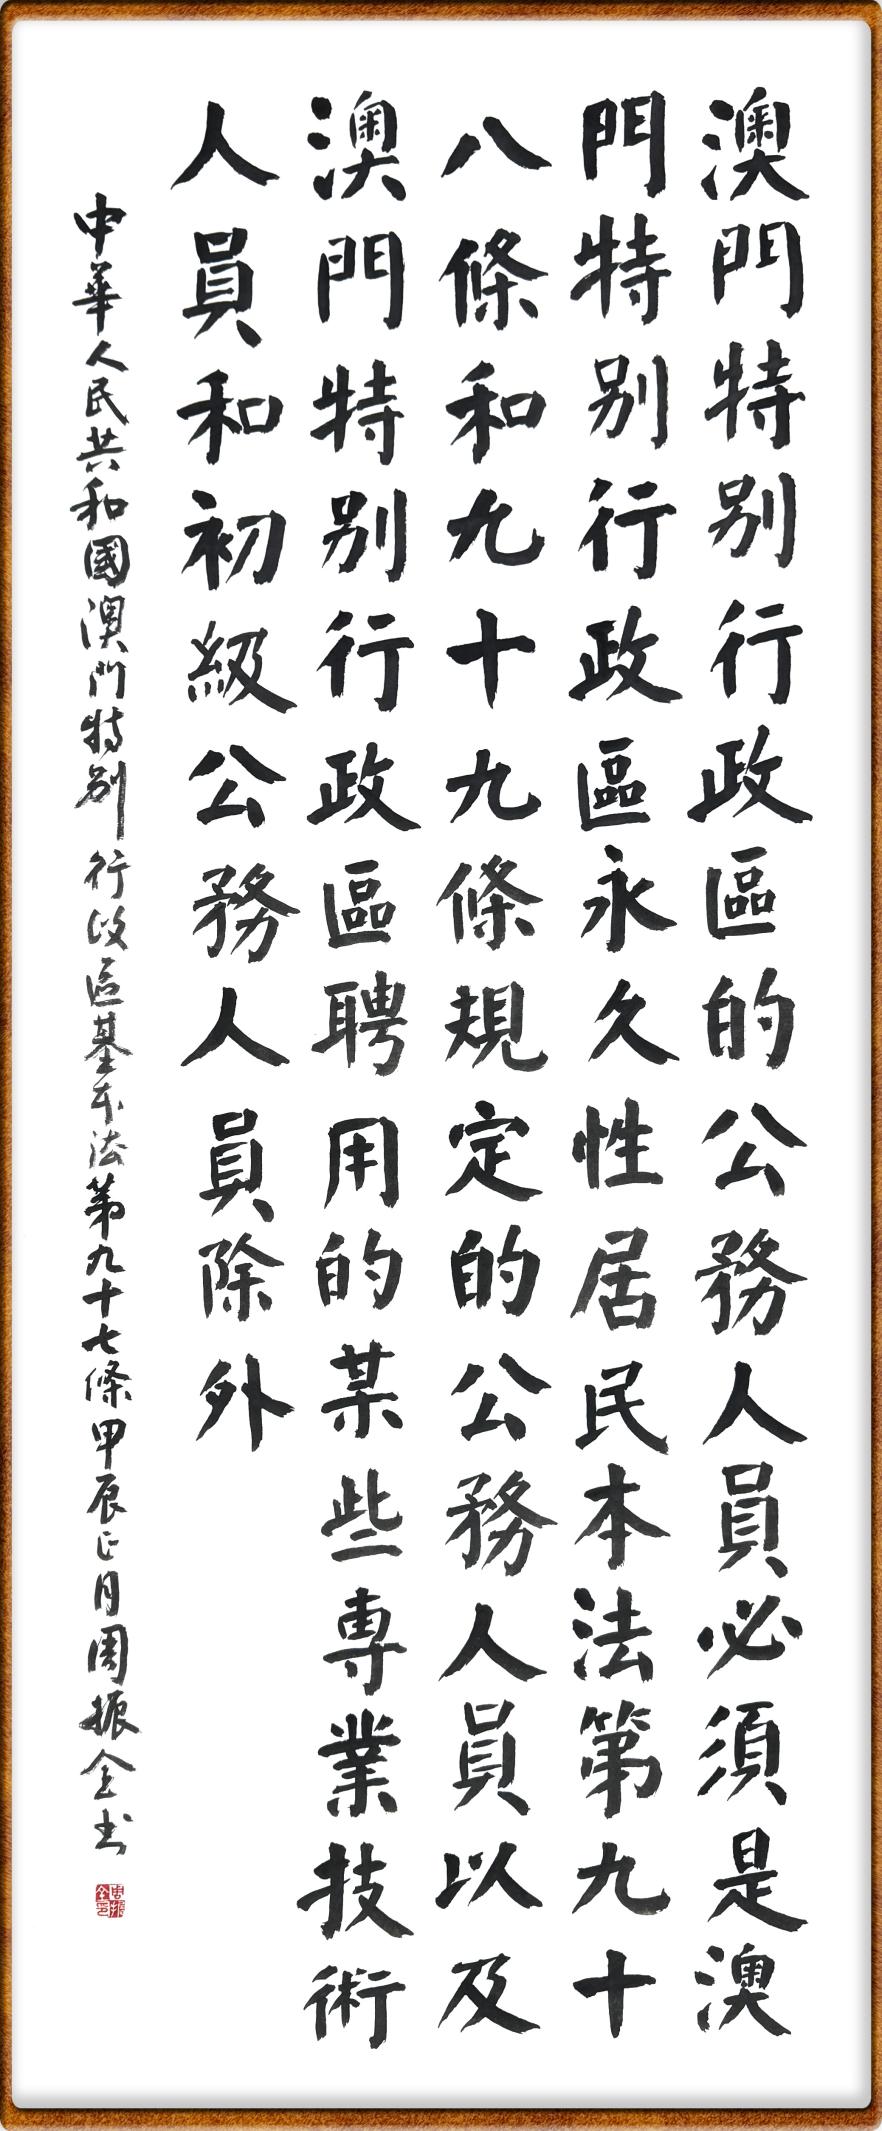 澳門特别行政區的公務人員必須是澳
門特别行政區永久性居民本法第九十
八條和九十九條規定的公務人員以及
澳門特别行政區聘用的某些專業技術
人員和初級公務人員除外
中華人民共和國澳門特别行政區基本法第九十七條甲辰正月周振全书